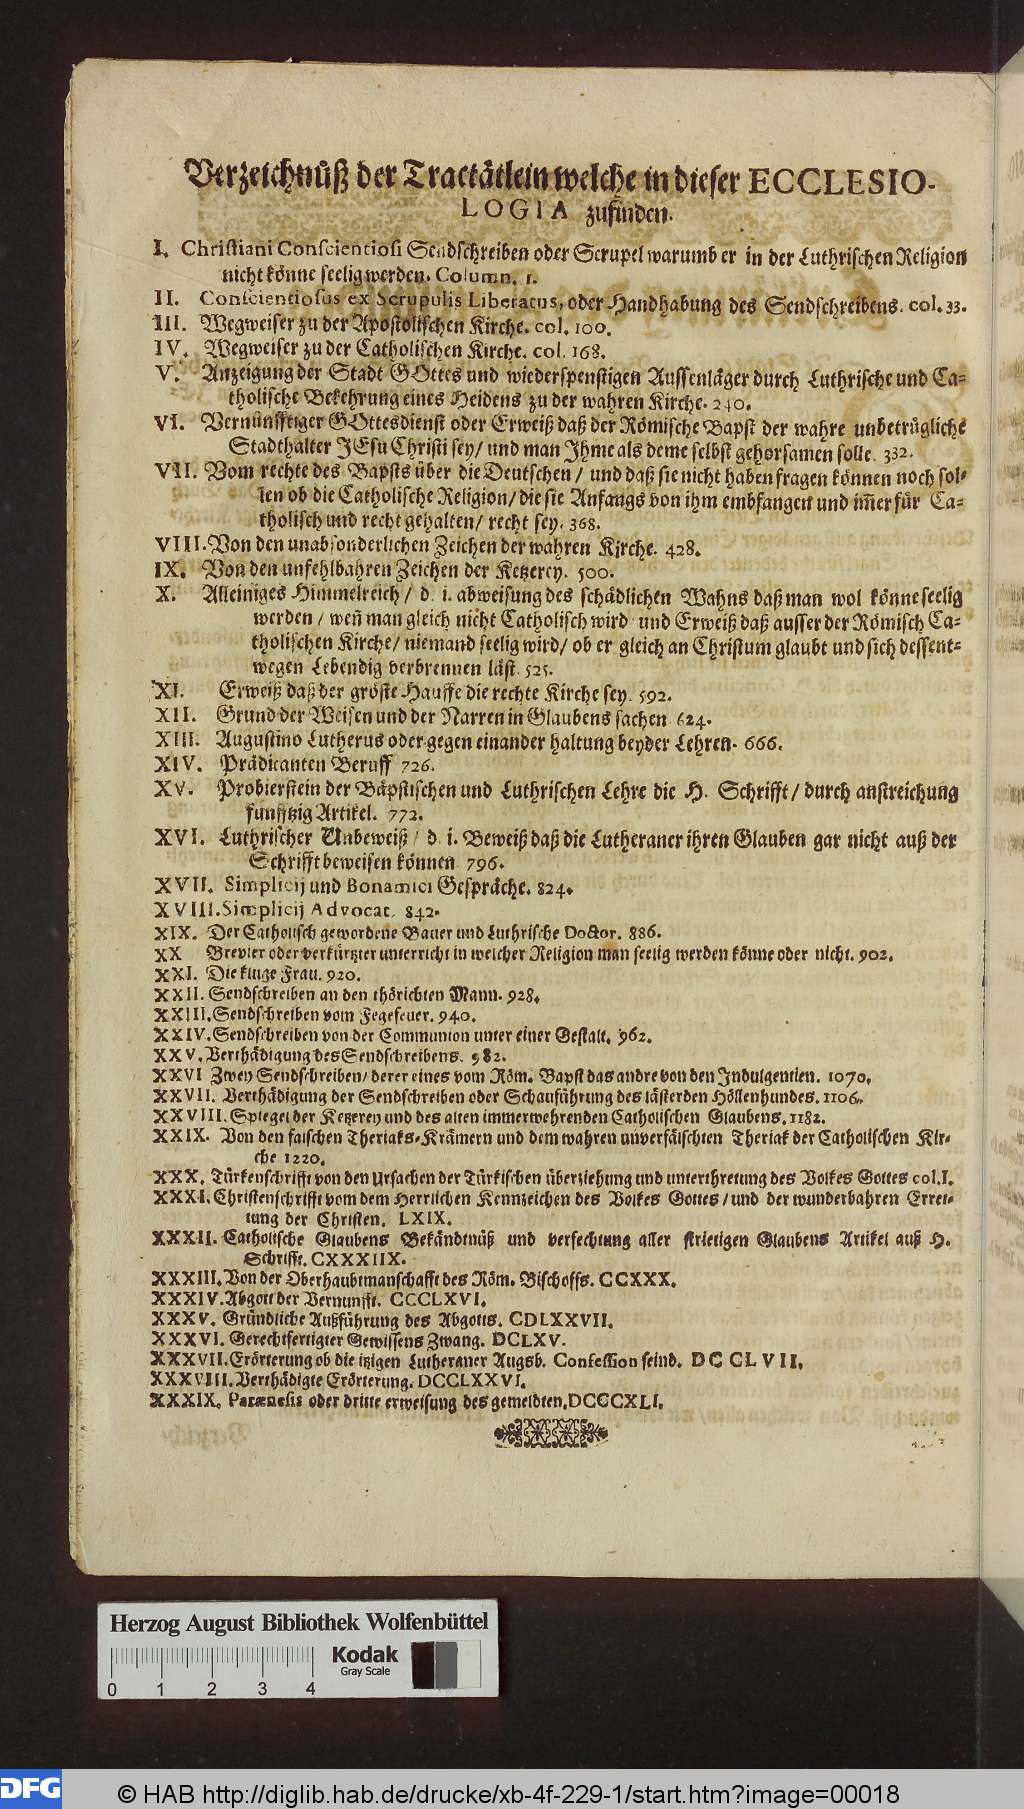 Verzeichnüß der Tractätlein welche in dieser ECCLESIO-
LOGIA zufinden.
I. Christiani Conscientiosi Sendschreiben oder Scrupel warumb er in der Luthrischen Religion
nicht könne seelig werden. Column. 1.
II. Conscientiosus ex Scrupulis Liberatus, oder Handhabung des Sendschreibens. col. 33.
III. Wegweiser zu der Apostolischen Kirche. col. 100.
IV. Wegweiser zu der Catholischen Kirche. col. 168.
V. Anzeigung der Stadt GOttes und wiederspenstigen Aussenläger durch Luthrische und Ca=
tholische Bekehrung eines Heidens zu der wahren Kirche. 240.
VI. Vernünfftiger GOttesdienst oder Erweiß daß der Römische Bapst der wahre unbetrügliche
Stadthalter JEsu Christi sey/ und man Jhme als deme selbst gehorsamen solle. 332.
VII. Vom rechte des Bapsts über die Deutschen / und daß sie nicht haben fragen können noch sol=
len ob die Catholische Religion/ die sie Anfangs von ihm embfangen und im̄er für Ca=
tholisch und recht gehalten/ recht sey. 368.
VIII. Von den unabsonderlichen Zeichen der wahren Kirche. 428.
IX. Von den unfehlbahren Zeichen der Ketzerey. 500.
X. Alleiniges Himmelreich / d. i. abweisung des schädlichen Wahns daß man wol könne seelig
werden / weñ man gleich nicht Catholisch wird und Erweiß daß ausser der Römisch Ca=
tholischen Kirche/ niemand seelig wird/ ob er gleich an Christum glaubt und sich dessent=
wegen Lebendig verbrennen läst. 525.
XI. Erweiß daß der gröste Hauffe die rechte Kirche sey. 592.
XII. Grund der Weisen und der Narren in Glaubens sachen 624.
XIII. Augustino Lutherus oder gegen einander haltung beyder Lehren. 666.
XIV. Prädicanten Beruff 726.
XV. Probierstein der Bäpstischen und Luthrischen Lehre die H. Schrifft / durch anstreichung
funfftzig Artikel. 772.
XVI. Luthrischer Unbeweiß / d. i. Beweiß daß die Lutheraner ihren Glauben gar nicht auß der
Schrifft beweisen können 796.
XVII. Simplicij und Bonamici Gespräche. 824.
XVIII. Simplicij Advocat. 842.
XIX. Der Catholisch gewordene Bauer und Luthrische Doctor. 886.
XX Brevier oder verkürtzter unterricht in welcher Religion man seelig werden könne oder nicht. 902.
XXI. Die kluge Frau. 920.
XXII. Sendschreiben an den thörichten Mann. 928.
XXIII. Sendschreiben vom Fegefeuer. 940.
XXIV. Sendschreiben von der Communion unter einer Gestalt. 962.
XXV. Verthädigung des Sendschreibens. 982.
XXVI Zwey Sendschreiben/ derer eines vom Röm. Bapst das andre von den Indulgentien. 1070.
XXVII. Verthädigung der Sendschreiben oder Schauführung des lästerden Höllenhundes. 1106.
XXVIII. Spiegel der Ketzerey und des alten immerwehrenden Catholischen Glaubens. 1182.
XXIX. Von den falschen Theriaks-Krämern und dem wahren unverfälschten Theriak der Catholischen Kir=
che 1220.
XXX. Türkenschrifft von den Ursachen der Türkischen überziehung und unterthretung des Volkes Gottes col. I.
XXXI. Christenschrifft vom dem Herrlichen Kennzeichen des Volkes Gottes/ und der wunderbahren Erret=
tung der Christen. LXIX.
XXXII. Catholische Glaubens Bekändtnüß und verfechtung aller strietigen Glaubens Artikel auß H.
Schrifft. CXXXIIX.
XXXIII. Von der Oberhaubtmanschafft des Röm. Bischoffs. CCXXX.
XXXIV. Abgott der Vernunfft. CCCLXVI.
XXXV. Gründliche Außführung des Abgotts. CDLXXVII.
XXXVI. Gerechtfertigter Gewissens Zwang. DCLXV.
XXXVII. Erörterung ob die itzigen Lutheraner Augsb. Confession seind. DCCLVII.
XXXVIII. Verthädigte Erörterung. DCCLXXVI.
XXXIX. Parænesis oder dritte erweisung des gemeldten. DCCCXLI.
Herzog August Bibliothek Wolfenbüttel
Kodak
Gray Scale
0 1 2 3 4
DFG © HAB http://diglib.hab.de/drucke/xb-4f-229-1/start.htm?image=00018